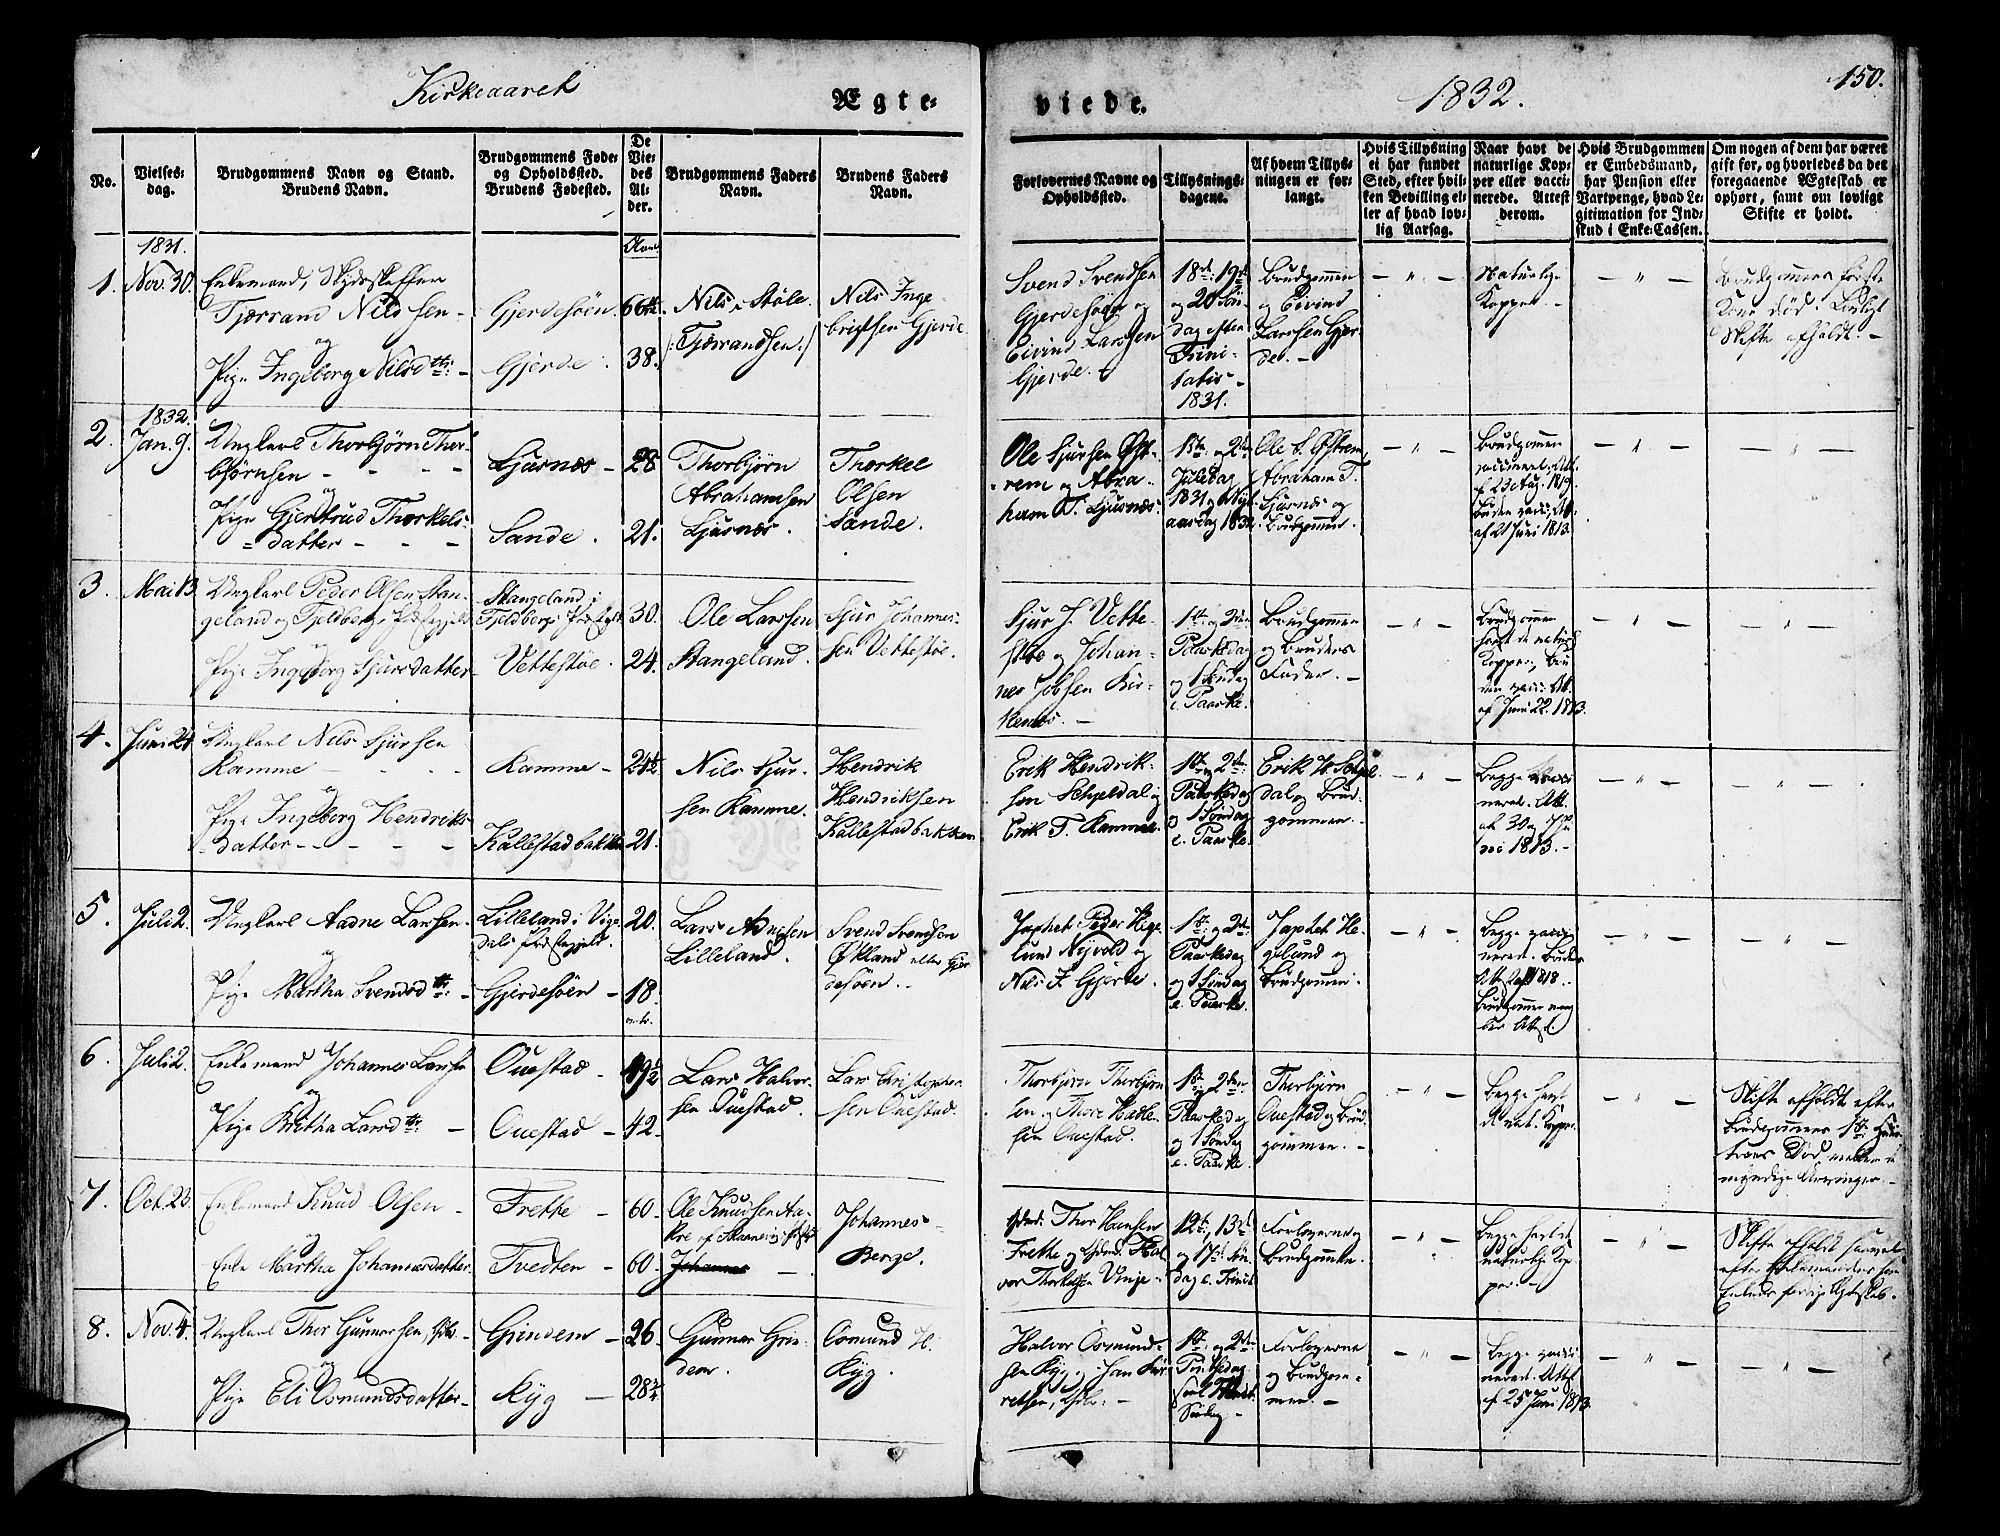 Kirkeaaret
Ægte-
No.
Vielses-
dag.
Brudgommens Navn og Stand.
Brudens Navn.
Brudgommens Føde-
og Opholdssted.
Brudens Fødested.
De
Vie-
des
Al-
der.
Brudgommens Faders
Navn.
Brudens Faders
Navn.
1831.
1. Nov. 30.
Enkemand,
Tjærrand Nilssen -
og
Pige Ingeborg Nilsdtr: -
Gjerdesöen.
Gjerde.
66
38.
Nils Støle
/: Tjærrandsen :/
Nils Inge-
brigtsen Gjerde.
1832.
2. Jan. 9.
Ungkarl Thorbjørn Thor-
björnsen - - -
og
Pige Gjertrud Thorkels-
datter - - -
Ljusnæs -
Sande.
28
21.
Thorbjörn
Abrahamsen
Ljusnæs.
Thorkel
Olsen
Sande.
3. Mai 13.
Ungkarl Peder Olsen Stan-
geland og Fjeldbergs Præstegjeld
og
Pige Ingeborg Sjursdatter -
Stangeland i
Fjeldbergs Præstegjeld
Vettestöe.
30.
24.
Ole Larssen
Stangeland.
Sjur Johannes-
sen Vettestöe.
4. Juni 24.
Ungkarl Nils Sjursen
Kamme - - -
og
Pige Ingeborg Hendriks-
datter - - - -
Kamme -
Kallestadbakken
24½
21.
Nils Sjur-
sen Kamme.
Hendrik
Hendriksen
Kallestadbakken
5. Juli 2.
Ungkarl Aadne Larsen -
og
Pige Martha Svensdtr: -
Lilleland i Vige-
dals Præstegjeld.
Gjerdesöen -
20.
18.
Lars Adnesen
Lilleland.
Svend Svendsen
Økland eller Gjer-
desöen. -
6. Juli 2.
Enkemand Johannes Larsen
og
Pige Britha Larsdtr: -
Ouestad -
Ouestad -
49½
42.
Lars Halvor-
sen Ouestad.
Lars Christopher-
sen Ouestad.
7. Oct. 23.
Enkemand Knud Olsen -
og
Enke Martha Johannesdatter.
Frette -
Tvedten -
60.
60.
Ole Knudsen Aa-
kre af
Johannes
Johannes
Berge.
8. Nov. 4.
Ungkarl Thor Gunnersen,
og
Pige Eli Osmundsdatter -
Grindem -
Kyg -
26.
28¾
Gunner Grin-
dem.
Osmund H.
Kyg.
viede.
1832.
150.
Forlovernes Navne og
Opholdssted.
Tillysnings-
dagene.
Af hvem Tillys-
ningen er for-
langt.
Hvis Tillysning
ei har fundet
Sted, efter hvil-
ken Bevilling el-
ler af hvad lov-
lig Aarsag.
Naar havt de
naturlige Kop-
per eller vacci-
nerede. Attest
derom.
Hvis Brudgommen
er Embedsmand,
har Pension eller
Vartpenge, hvad Le-
gitimation for Ind-
skud i Enke-Cassen.
Om nogen af dem har været
gift før, og hvorledes da det
foregaaende Ægteskab er
ophørt, samt om lovligt
Skifte er holdt.
Svend Svendsen
Gjerdesöen og
Eivind Larssen
Gjerde. -
18de, 19de
og 20 Sön-
dag efter
Trini-
tatis -
1831.
Brudgommen
og Eivind
Larssen Gjer-
de. -
Naturlige
Kopper. -
Brudgommens første
Kone död. Lovligt
Skifte afholdt. -
Ole Sjursen Øst-
rem og Abra-
ham T. Ljusnæs.
1ste og 2den
Juledag
1831 og Nyt-
aarsdag 1832
Ole S. Østrem,
Abraham T.
Ljusnæs og
Brudgommen.
Brudgommen
vaccineret. Att.
af 23 Aug. 1819.
Bruden vacc: Att.
af 21 Juni 1813.
Sjur J. Vette-
stöe og Johan-
nes Jobsen Kir-
kenæs. -
1ste og 2den
Paaskedag
og 1 Söndag
e. Paaske.
Brudgommen
og Brudens
Fader. -
Brudgommen
havt de naturl.
Kopper, Bru-
den vacc: Att.
af Juni 22. 1813.
Erik Hendrik-
sen Schjeldal og
Erik T. Kamme.
1ste og 2den
Paaskedag
og 1 Söndag
e. Paaske.
Erik H. Schjel-
dal og Brud-
gommen. -
Begge vacci-
neret. Att.
af 30 og 7 Ju-
ni 1813. -
Japhet Peder Hege-
lund Nyvold og
Nils J. Gjerde.
1ste og 2den
Paaskedag
og 1 Söndag
e. Paaske.
Japhet He-
gelund og
Brudgommen.
Begge vacci-
neret. Brudens
Attest af 1818. -
Brudgommen mang-
ler Attest.
Thorbjørn Thorbjörn-
sen og Thore Hadle-
sen Ouestad.
1ste og 2den
Paaskedag
og 1 Söndag
e. Paaske
Thorbjörn
Ouestad og Brud-
gommen. -
Begge havt
d. nat. Kopper.
Skifte afholdt efter
Brudgommens 1ste Hus-
trues Död, mellem u-
myndige Arvinger. -
Thor Hansen
Frette og Hal-
vor Thorkelsen Vinje -
12te, 13de
og 17de Sön-
dag e. Trinit.
Forloverne og
Brudgommen.
Begge havt de
naturlige Kop-
per. -
Skifte afholdt saavel
efter Enkemandens som
Enkens forrige Ægteskab.
Halvor Osmund-
sen Kyg, og Jan
1ste og 2den
Pintsedag
Söndag -
Forloverne
og Brudgom-
men. -
Begge vacci-
neret. Attest
af 25 Juni 1813.